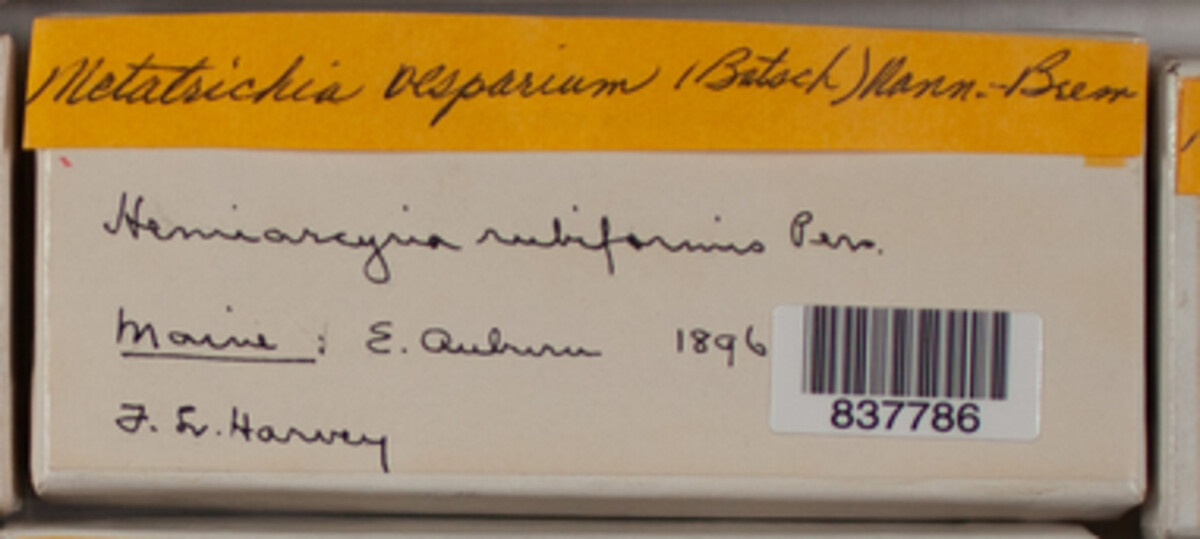 Metatrichia vesparium (Batsch) Nann.-Brem
Hemiarcyria rubiformis Pers.
Maine: E. Auburn 1896
F. L. Harvey
837786